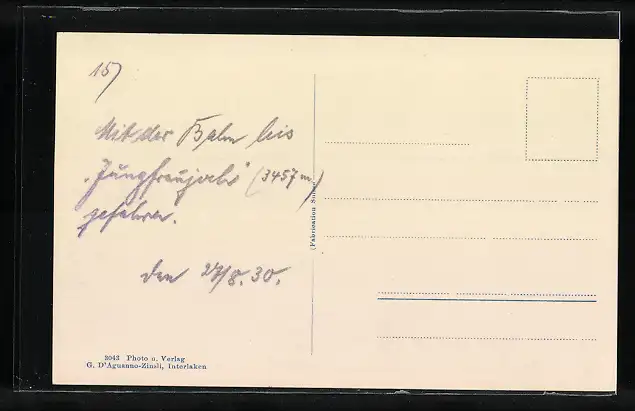 15)
Mit der Bahn bis
"Jungfraujoch" (3457 m)
gefahren.
den 27/8.30.
(Fabrication Suisse)
3043 Photo u. Verlag
G. D'Aguanno-Zinsli, Interlaken